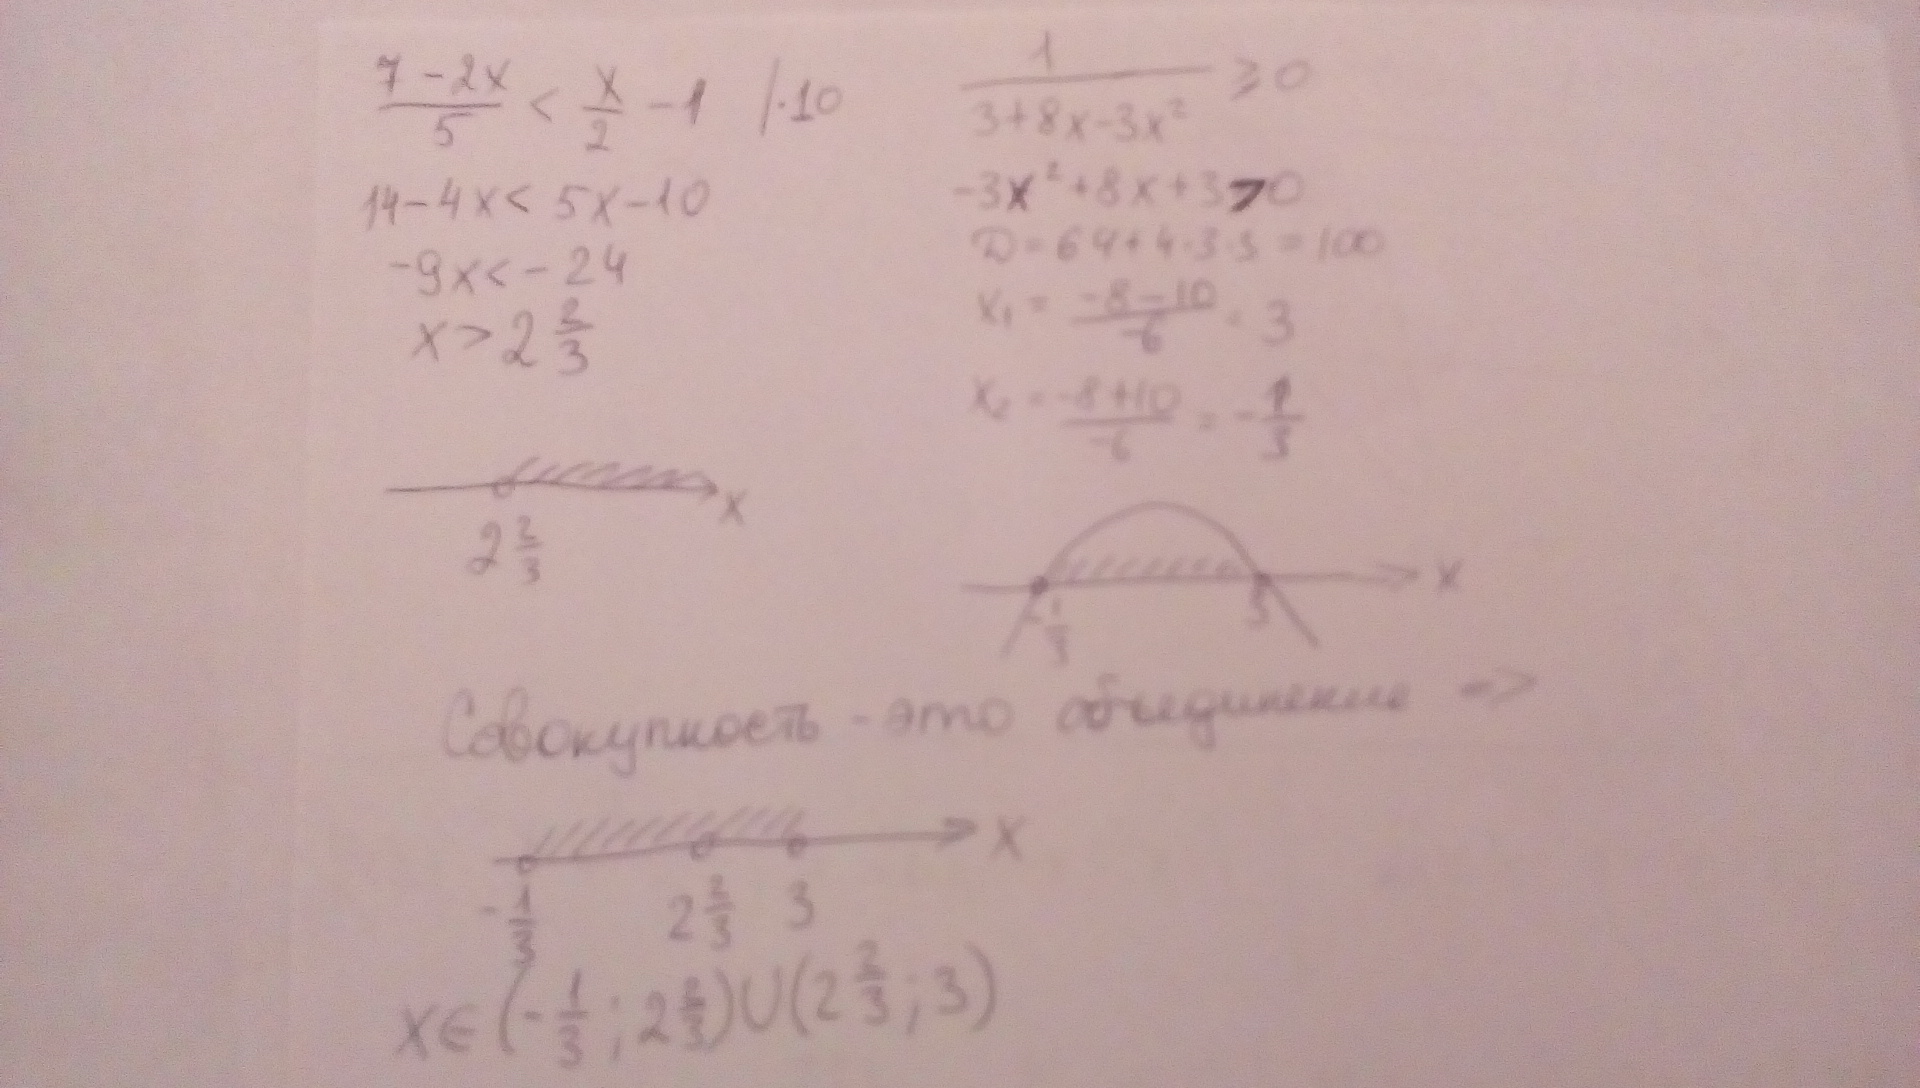 (7-2x)/5 < x/2 - 1 /·10
14-4x < 5x-10
-9x < -24
x > 2 2/3
x
2 2/3
1/(3+8x-3x²) ≥ 0
-3x²+8x+3>0
D=64+4·3·3=100
x₁ = (-8-10)/-6 = 3
x₂ = (-8+10)/-6 = -1/3
x
-1/3 3
Совокупность - это объединение =>
x
-1/3 2 2/3 3
x∈(-1/3; 2 2/3)∪(2 2/3; 3)